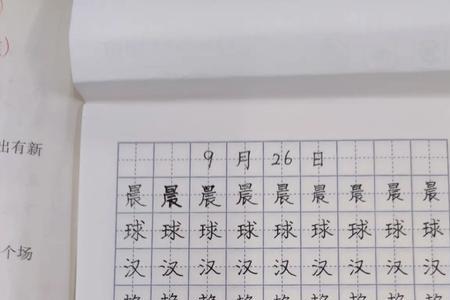 出有新
个场
9月26日
晨晨晨晨晨晨晨晨晨
球球球球球球球球球
汉汉汉汉汉汉汉汉汉